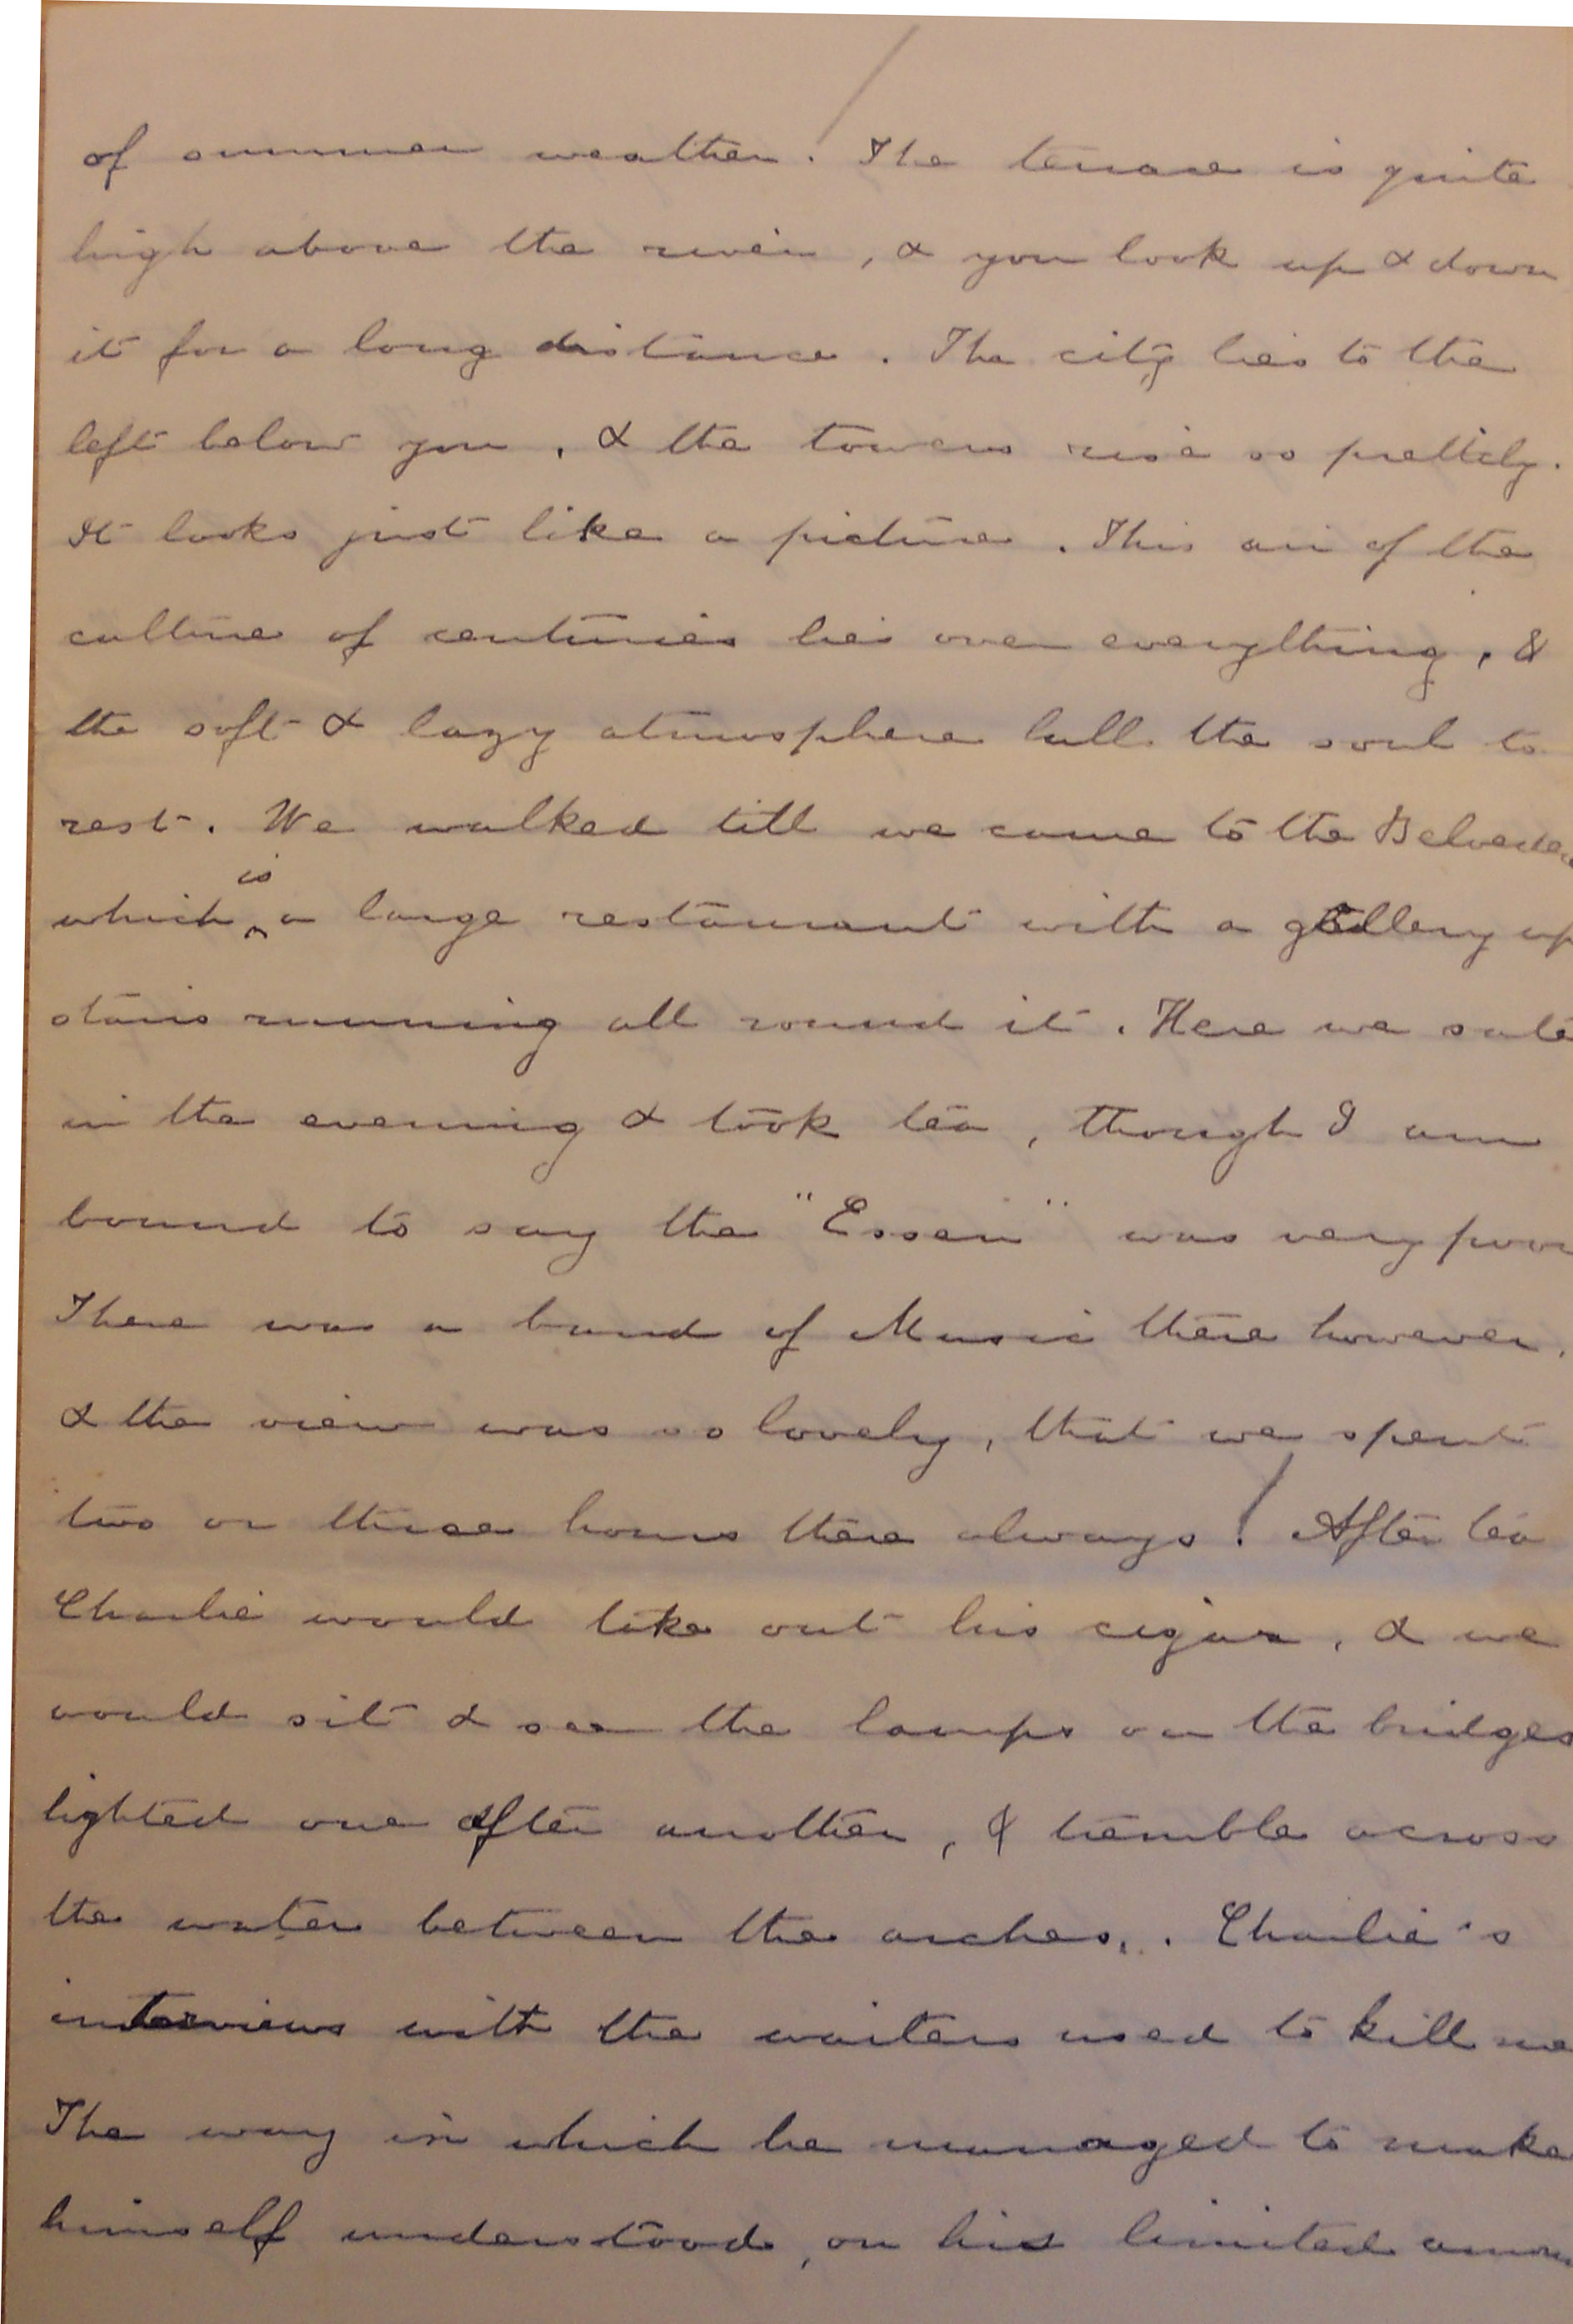 of summer weather. The terrace is quite
high above the river, & you look up & down
it for a long distance. The city lies to the
left below you, & the towers rise so prettily.
It looks just like a picture. This air of the
culture of centuries lies over everything, &
the soft & lazy atmosphere lull the soul to
rest. We walked till we came to the Belvedere
which is a large restaurant with a gallery up
stairs running all round it. Here we sate
in the evening & took tea, though I am
bound to say the "Essen" was very poor
There was a band of Music there however,
& the view was so lovely, that we spent
two or three hours there always! After tea
Charlie would take out his cigar, & we
would sit & see the lamps on the bridges
lighted one after another, & tremble across
the water between the arches. Charlie's
interviews with the waiters used to kill me
The way in which he managed to make
himself understood, on his limited amou